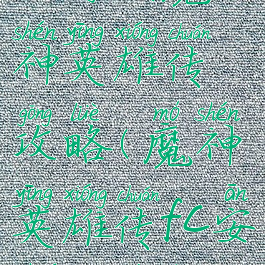 shén yīng xióng chuán
神英雄传
gōng lüè mó shén
攻略(魔神
yīng xióng chuán ān
英雄传fc安